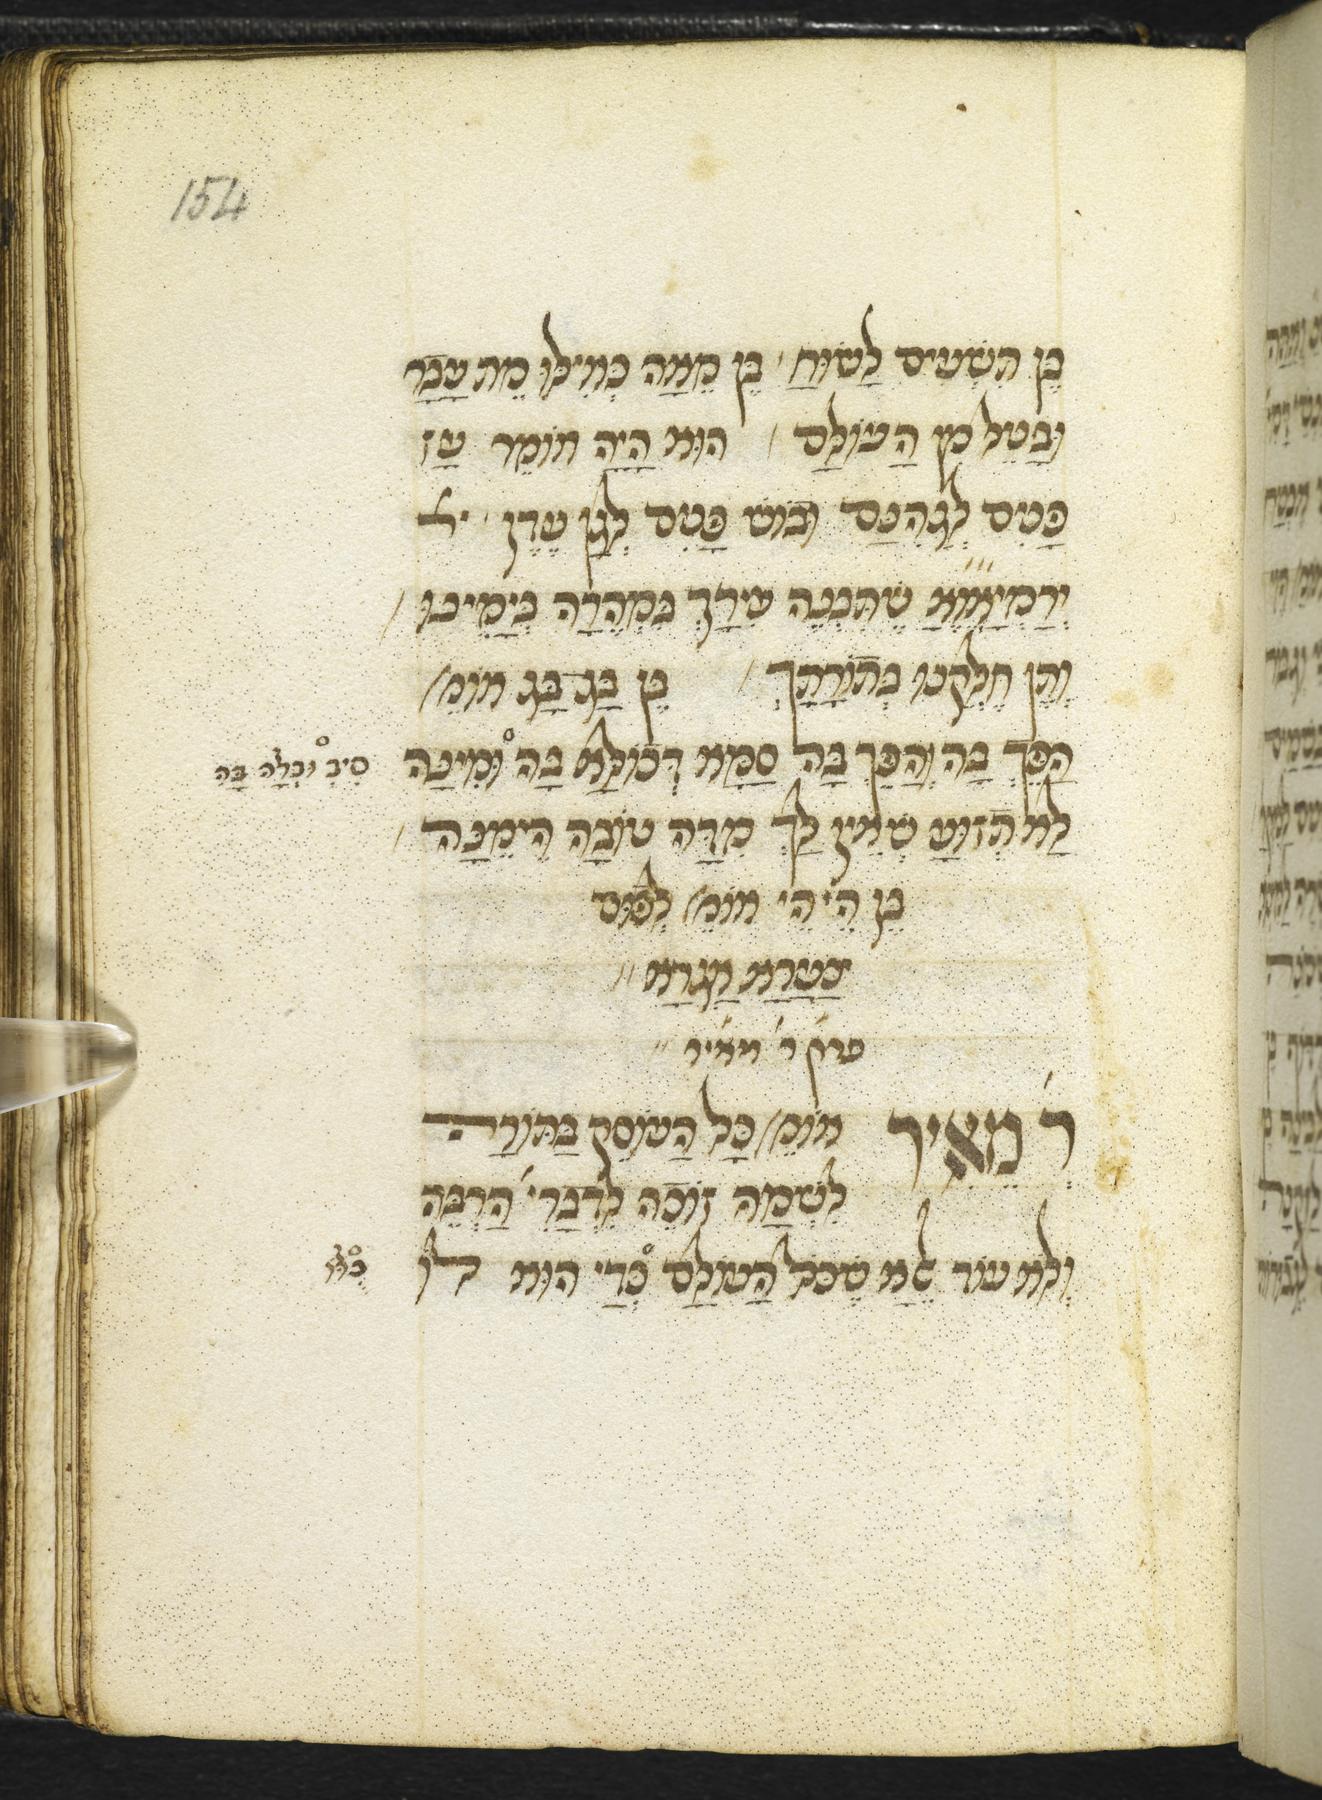 154
בֶּן תִּשְׁעִים לָשׁוּחַ, בֶּן מֵאָה כְּאִילּוּ מֵת עָבַר
וּבָטֵל מִן הָעוֹלָם / הוּא הָיָה אוֹמֵר עַז
פָּנִים לְגֵהִנָּם וּבוֹשׁ פָּנִים לְגַן עֵדֶן, י״ר
יְ״רַ״מִ״יָ״אֱ״וֵ״אֲ״ שֶׁתִּבְנֶה עִירָךְ בִּמְהֵרָה בְיָמֵינוּ /
וְתֵן חֶלְקֵנוּ בְּתוֹרָתָךְ / בֶּן בַּג בַּג אוֹמֵ׳
הֲפֵךְ בָּהּ וַהֲפֵךְ בָּהּ סַמָּא דְכוֹלָּא בָהּ° וּמִינָּהּ
סִיב° וּבְלָה בָּהּ
לָא תְּזוּעַ שְׁאֵין לָךְ מִדָּה טוֹבָה הֵימֵנָּה /
בֶּן הֵי הֵי אוֹמֵ׳ לְפוּם
צַעֲרָא אַגְרָא //
פרק ר׳ מאיר //
ר׳ מֵאִיר אוֹמֵ׳ כָּל הָעוֹסֵק בַּתּוֹרָה
לִשְׁמָהּ זוֹכֶה לִדְבָרִי׳ הַרְבֵּה
וְלֹא עוֹד אֶלָּא שֶׁכָּל הָעוֹלָם° כְּדַי הוּא לו
כֻּלּוֹ°